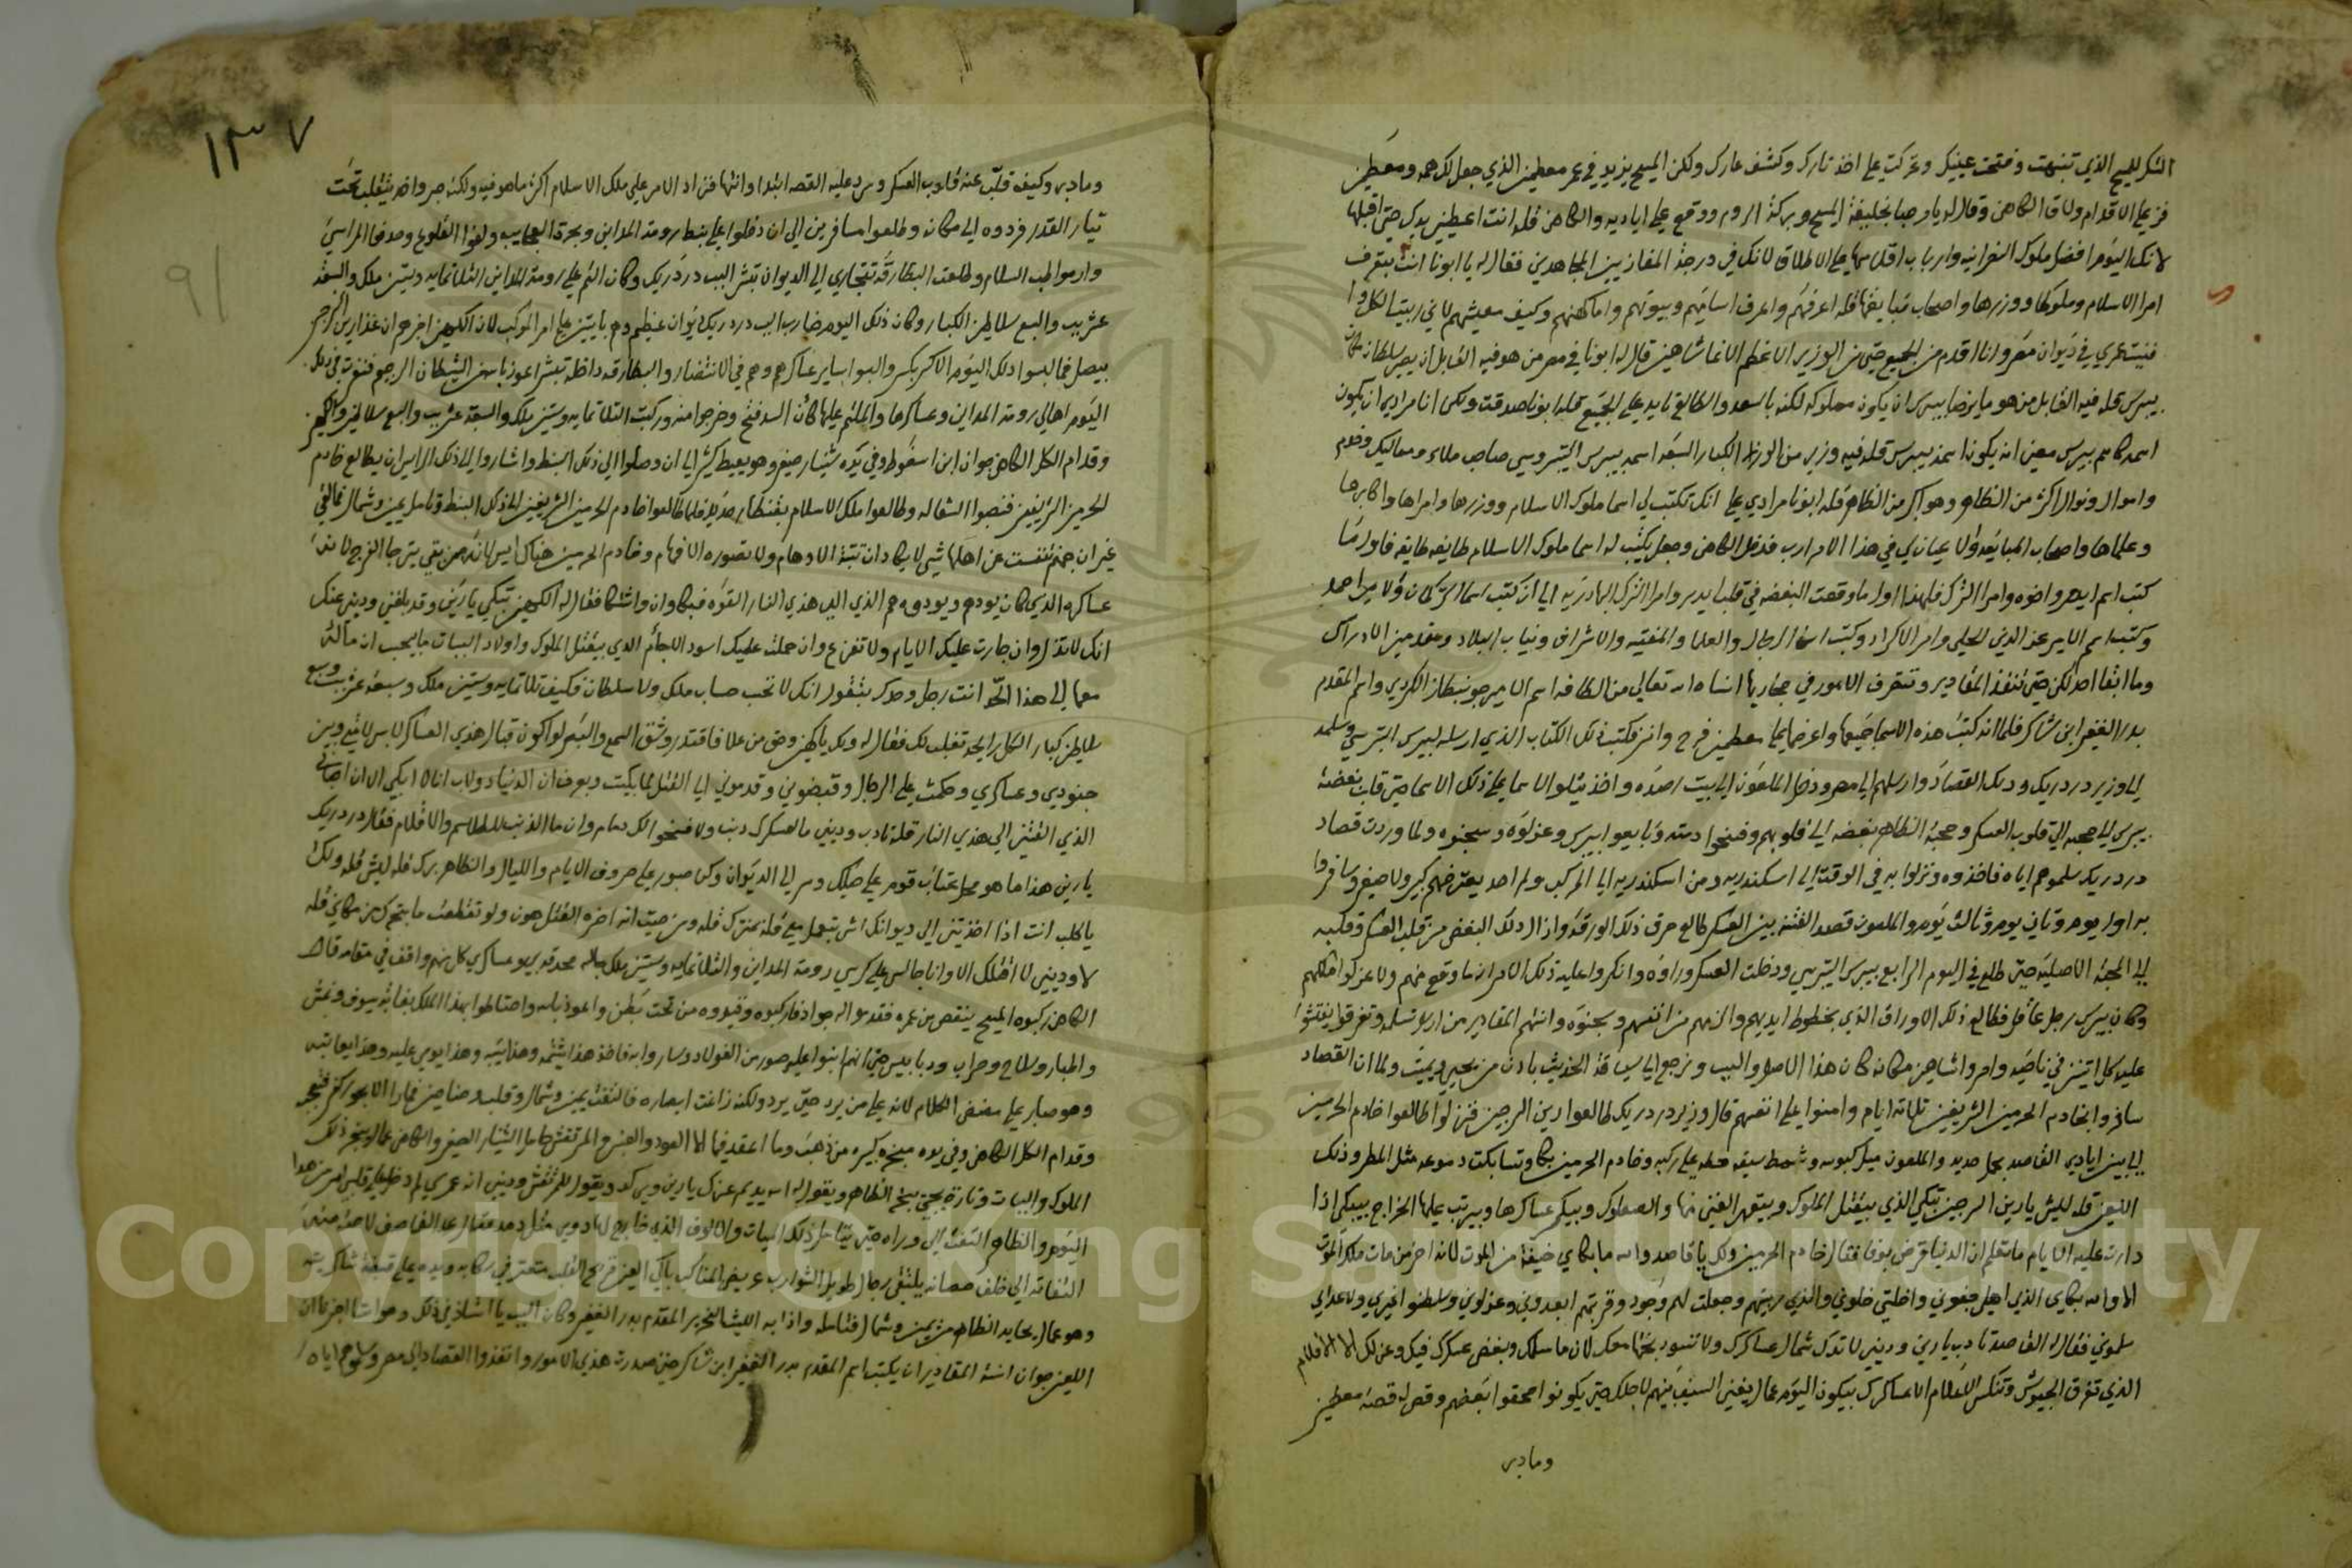 الشكر للمسيح الذي تنبهت وفتحت عينيك وتحركت على اخذ تارك وكشف عارك ولكن المسيح يزيد في عمر معطمين الذي جعل لك همه ومعطمين
فزع على الاقدام ولاقا الكاهن وقال له يا مرحبا بخليفة المسيح وبركة الروم ووقع على اياديه والكاهن قله انت اعطيني يدك حتى اقبلها
لانك اليوم افضل ملوك النصرانيه وارباب على الاطلاق لانك في درجة المجاهدين فقال له يا ابونا انت بتعرف
امرا الاسلام وملوكها ووزرها واصحاب قله اعرفهم واعرف اساميهم وبيوتهم واماكنهم وكيف معيشتهم لاني ربيت
في ديوان مصر وانا اقدم من الجميع حتى من الوزير الاعظم الاغا شاهين قال له ابونا في مصر من هو فيه القابل ان يصير سلطان
بيبرس قله فيه القابل من هو ما يرضا بيبرس ان يكون مملوكه لكنه بالسعد والطالع تايد على الجميع قله ابونا صدقت ولكن انا مرادي ان يكون
اسمه كاسم بيبرس معين انه يكون اسمه بيبرس قله فيه وزير من الوزرا الكبار السبعه اسمه بيبرس التتريسي صاحب ملاء ومماليك وخدم
واموال ونوال اكثر من الظاهر وهو اكبر من الظاهر قله ابونا مرادي على انك تكتب لي اسما ملوك الاسلام ووزرها وامراها واكابرها
وعلماها واصحاب في هذا الامر ارب فدخل الكاهن وجعل يكتب له اسما ملوك الاسلام طايفه طايفه فاول ما
كتب اسم ايدمر واخوه وامرا الترك فلهذا اول ما وقعت البغضه في قلب ايدمر وامرا الترك الى ان كتب اسما التركمان والامير احمد
وكتب اسم الامير عز الدين الحلي وامر الاكراد وكتب اسما الرجال والعلما والمفتيه والاشراف ونياب البلاد ومقدمين الادراك
وما ابقا احد لكن حتى تنفذ المقادير وتتصرف الامور في مجاريها انشاه الله تعالى من الكافه اسم الامير الكردي واسم المقدم
بدر الغفير ابن شاكر فلما انه كتبت هذه الاسما جميعها واعرضها على معطمين فرح وانسر فكتب ذلك الكتاب الذي ارسله لبيبرس التتريسي وسلمه
الى وزير دردريك ودلك القصاد وارسلهم الى مصر ودخل الملعون الى بيت رصده واخذ يتلو الاسما على ذلك الاسما حتى قلب بغضة
بيبرس الى محبه الى قلوب العسكر ومحبة الظاهر بغضه الى قلوبهم وفسخوا دسته وبايعوا بيبرس وعزلوه وسجنوه ولما وردت قصاد
دردريك سلموهم اياه فاخذوه ونزلوا به في الوقت الى اسكندريه ومن اسكندريه الى المركب ولم احد يعترضهم كبير ولا صغير وسافروا
به اول يوم وتاني يوم وتالت يوم والملعون قصد الفتنه بين العسكر طالع حرق ذلك الورقه وازال دلك البغض من قلب العسكر وقلبه
الى المحبة الاصليه حتى طلع في اليوم الرابع بيبرس التتريسي ودخلت العسكر وراوه وانكروا عليه ذلك الامر ان ما وقع منهم ولا عزلوا ملكهم
وكان بيبرس رجل عاقل فطالع ذلك الاوراق الذي بخطوط ايديهم والزمهم من انفسهم وسجنوه وانتهم المقادير من ارسلا تسلمه وتفرقوا يفتشوا
عليه كل اتنين في ناحيه وامروا شاهين مكانه كان هذا الاصل والسبب ونرجع الى سياقة الحديث بادن من يحيي ويميت ولما ان القصاد
سافروا بخادم الحرمين الشريفين تلاتة ايام وامنوا على انفسهم قال وزير دردريك طالعوا رين المرجين فنزلوا طالعوا خادم الحرمين
الى بين ايادي القاصد بحبل حديد والملعون وشمط سيفه حطه على ركبه وخادم الحرمين بكا وتساكبت دموعه مثل المطر وذلك
اللعين قله ليش يا رين المرجين تبكي الذي بيقتل الملوك وبيقهر الغني منها والصعلوك وبيكسر عساكرها وبيرتب عليها الخراج بيبكي اذا
دارت عليه الايام ما تعلم ان الدنيا قرض بوفا فقال خادم الحرمين ولك يا قاصد والله ما بكاي خيفة من الموت لان اخر من مات ملك الموت
الا والله بكاي الذي اهلي جفوني واخلتي خلوني والذي ربيتهم وجعلت لهم وجود وقربتهم ابعدوني وعزلوني وسلطنوا غيري ولاعداي
سلموني فقال له القاصد تادب يا رين وديني لا تدك شمال عساكرك ولا تسود بختها معك لان ما سلمك وبغض عسكرك فيك وعزلك الا الاقلام
الذي تفرق الجيوش وتنكس الاعلام الا عساكرك بيكون اليوم عمال يغني السيف بينهم لاجلك حتى يكونوا محقوا بعضهم وقص له قصة معطمين
ومادبر
١٣٧
٩١
ومادبر وكيف قلب عنه قلوب العسكر وسرد عليه القصه ابتدا وانتها فزاد الامر على ملك الاسلام اكثر ما هو فيه ولكنه صبر واخذ يتقلب تحت
تيار القدر فردوه الى مكانه وطلعوا مسافرين الى ان دخلوا على بنط رومة المداين وبحرة العجايب ولفوا القلوع وحدفوا المراسي
وارموا طب السلام وطلعت البطارقه تتجاري الى الديوان تبشر البب دردريك وكان التم على رومة المداين التلاتمايه وستين ملك والسبعة
عشر بب والسبع سلاطين الكبار وكان ذلك اليوم ضارب البب دردريك ديوان عظيم وهم بايتين على امر المركب لان الكهين اخبرهم ان غدا رين المرجين
بيصل فما لبسوا دلك اليوم الا كسر بكسر والببوا بساير عساكرهم وهم في الانتضار والبطارقه داخله تبشر اعوذ بالله من الشيطان الرجيم
اليوم اهالي رومة المداين وعساكرها والملتم عليها كان السد فتح وخرجوا منه وركبت التلاتمايه وستين ملك والسبعة عشر بب والسبع سلاطين والكهين
وقدام الكل الكاهن جوان ابن اسفوط وفي يده شنيار صغير وهو بعيط كيش الى ان وصلوا الى ذلك البنط واشاروا الى ذلك الرايس ان يطالع خادم
الحرمين الشريفين فنصبوا السقاله وطالعوا ملك الاسلام بقنطار حديد فلما طالعوا خادم الحرمين الشريفين الى ذلك البنط وتامل يمين وشمال فما لقي
غير ان جهنم تنفست عن اهلها شي لا يكاد ان تثبته الاوهام ولا تصوره الافهام وخادم الحرمين هناك ايس لان من بقي يترجا الفرج
عساكره الذي كان يودهم ويودوه هم الذي القوه هذي النار القوه فبكا وان واشتكا فقال له الكهين تبكي يا رين وقد بلغني وديني عنك
انك لا تذل وان جارت عليك الايام ولا تفزع وان حملت عليك اسود الاجام الذي بيقتل الملوك واولاد الببات ما بيحسب ان مالها
معها الى هذا الحد انت رجل وحدك بتقول انك لا تحسب حساب ملك ولا سلطان فكيف تلاتمايه وستين ملك وسبعة عشر بب وسبع
سلاطين كبار الكل رايحه تغلب لك فقال له ولك يا كهين وحق من علا فاقتدر وشق السمع والبصر لو اكون قبال هذي العساكر لابس لامتي وبين
جنودي وعساكري وحكمت على الرجال وقبضوني وقدموني الى القتل لما بكيت وبعرف ان الدنيا دولاب انا لا ابكي الا ان احبابي
الذي القتني الى هذي النار قله تادب وديني ما لعسكرك دنب ولا فسخوا لك دمام وان ما الذنب للطلاسم والاقلام فقال دردريك
يا رين هذا ما هو محل عتاب قوم على حيلك وسر الى الديوان وكن صبور على صروف الايام والليال والظاهر برك قله ليش قله ولك
يا كلب انت اذا اخذتني الى ديوانك اش بتعمل معي قله بحترك قله ومن حيث انه اخره القتل هون ولو تقطعت ما بتحرك من مكاني قله
لا وديني لا اقتلك الا وانا جالس على كرسي رومة المداين والتلاتمايه وستين ملك وساير عساكري كل منهم واقف في مقامه قال
الكاهن ركبوه المسيح ينقص من عمره فقدموا له جواد فاركبوه وقيدوه من تحت بطن والعوذ بالله واحتاطوا بهذا الملك بغابة سيوف ونمش
واطبار وسلاح وحراب ودبابيس حتى انهم ابنوا عليه سور من الفولاد وسار وابه فاخذ هذا يشتمه وهذا يسبه وهذا يومي عليه وهذا يعاتبه
وهو صابر على مضض الكلام لانه على من يرد حتى يرد ولكنه زاغت ابصاره فالتفت يمين وشمال وقلبه حزين فما را الا بحور كفر تتجر
وقدام الكل الكاهن وفي يده مبخره كبيره من ذهب وما اعقد فيها الا العود والعنبر والمرتقش حامل الشنيار الصغير والكاهن عمال يبخر ذلك
الملوك والببات وتارة يجي يبخر الظاهر ويقول له الله يديم عزك يا رين ويركد ويقول للمرتقش وديني انه عمري لم دخل على قلبي اسر من هذا
اليوم والظاهر التفت الى وراه حتى يتامل ذلك الميات والالوف الذي خارج لها دوي مثل رعد فقال عا القاصف لاحت منه
التفاته الى خلف حصانه يلتقي رجل طويل الشوارب عريض المناكب باكي العين قريح القلب متعتر في ركابه ويده على قبضة شاكريته
وهو عمال يحايد الظاهر من يمين وشمال فتامله واذا به الليث النحرير المقدم بدر الغفير وكان السبب يا استاذ في ذلك وهو انا اخبرنا ان
اللعين جوان انسته المقادير ان يكتب اسم المقدم بدر الغفير ابن شاكر حتى صدرت هذي الامور وانفذوا القصاد الى مصر وسلموهم اياه